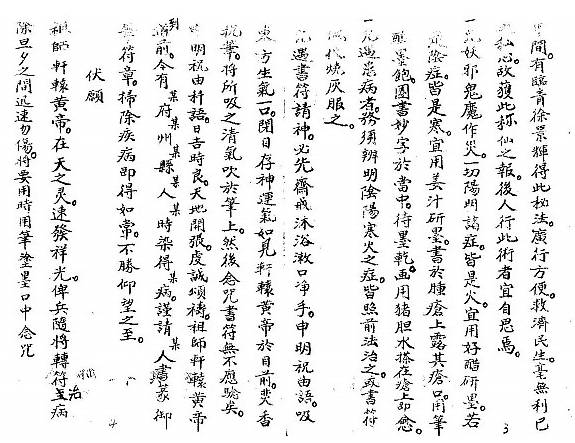 間。有臨青徐景輝得此秘法。廣行方便。救濟民生。毫無利己
私心。故獲此神仙之報。後人行此術者宜自思焉。
一凡妖邪鬼魔作災。一切陽明諸症。皆是火。宜用好醋研墨。若
陰症。皆是寒。宜用姜汁研墨。書於腫瘡上。露其瘡口。用筆
醮墨飽。圈書妙字於當中。待墨乾。再用猪胆水搽在瘡上即愈。
一凡遇患病者。務須辨明陰陽寒火之症。皆照前法治之。或書符
燒灰服之。
凡遇書符請神。必先齋戒沐浴。漱口净手。申明祝由語。吸
東方生氣一口。閉目存神運氣。如見軒轅黃帝於目前。焚香
執筆。將所吸之清氣吹於筆上。然後念咒書符。無不應驗矣。
申明祝由科語。日吉時良。天地開張。虔誠頌禱。祖師軒轅黃帝
到
御前。今有某府某州某縣某人某時染得某病。謹請某人書篆
符章。掃除疾病。即得如常。不勝仰望之至。
伏願
祖師軒轅黃帝。在天之灵。速發祥光。俾兵隨將轉。符至病
治
除。旦夕之間。迅速勿傷。將要用時。用筆塗墨。口中念咒
3
4